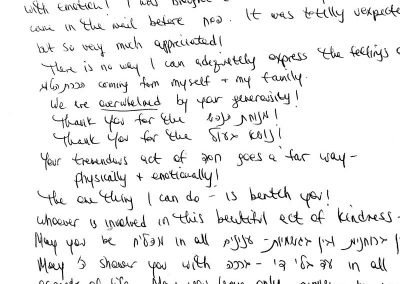 with emotion! I was
came in the mail before now. It was totlly unexpected
but so very much appriciated!
There is no way I can adequetely express the feelings
הכרת הטוב coming form myself + my family.
We are overwhelmed by your generosity!
Thank you for the מנוחת הנפש!
Thank you for the נושא בעול!
Your tremendous act of חסד goes a far way-
physically + emotionally!
The one thing I can do - is bentch you!
whoever is involved in this beautiful act of kindness-
May you be מצליח in all ענינים - אין רוחניות אין גשמיות
May ה' shower you with ברכה - עד בלי די in all